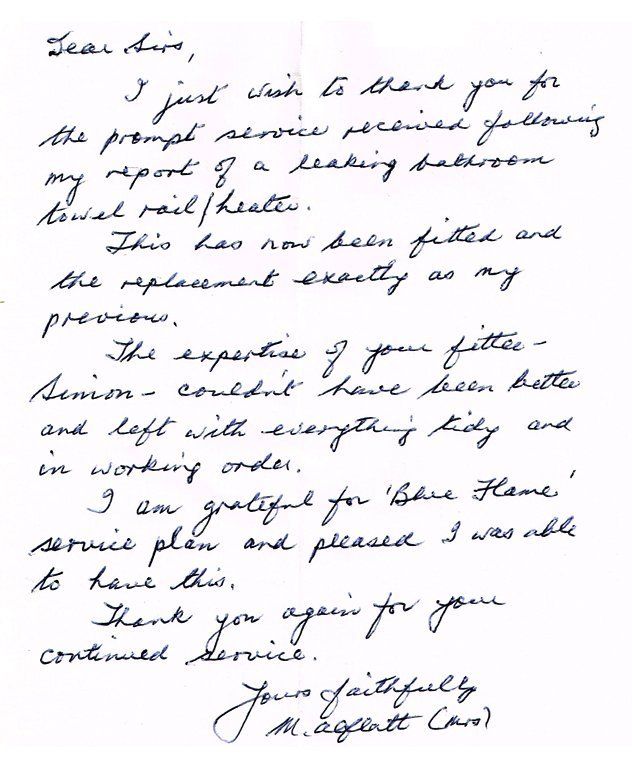 Dear Sirs,
I just wish to thank you for
the prompt service received following
my report of a leaking bathroom
towel rail/heater.
This has now been fitted and
the replacement exactly as my
previous.
The expertise of your fitter -
Simon - couldn't have been better
and left with everything tidy and
in working order.
I am grateful for 'Blue Flame'
service plan and pleased I was able
to have this.
Thank you again for your
continued service.
Yours faithfully
M. (Mrs)